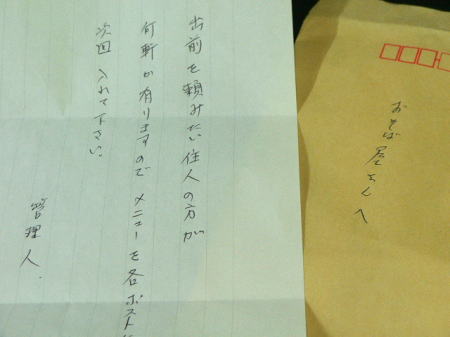 出前を頼みたい住人の方が
何軒か有りますので メニューを各ポストに
次回 入れて下さい。
管理人.
おそば屋さんへ